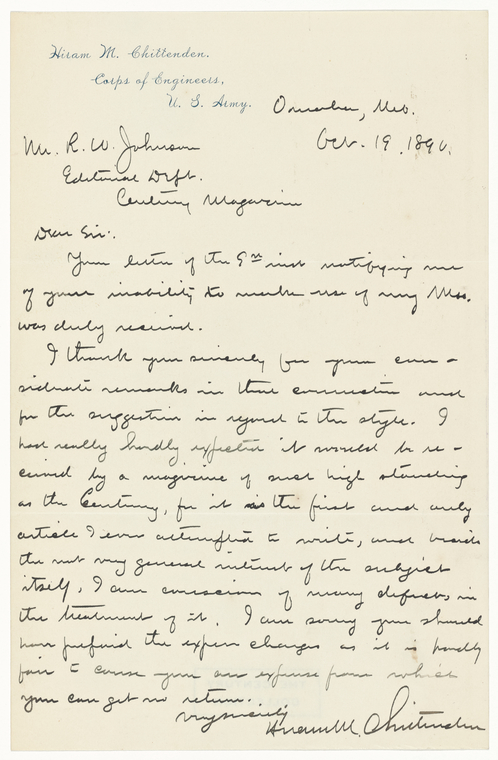 Hiram M. Chittenden.
Corps of Engineers,
U. S. Army.
Omaha, Neb.
Oct. 19, 1896.
Mr. R. W. Johnson
Editorial Dept.
Century Magazine
Dear Sir:
Your letter of the 9th inst notifying me
of your inability to make use of my Mss.
was duly received.
I thank you sincerely for your con-
siderate remarks in this connection and
for the suggestion in regard to the style. I
had really hardly expected it would be re-
ceived by a magazine of such high standing
as the Century, for it is the first and only
article I ever attempted to write, and beside
the not very general interest of the subject
itself, I am conscious of many defects in
the treatment of it. I am sorry you should
have prepaid the express charges as it is hardly
fair to cause you an expense from which
you can get no return.
Very sincerely
Hiram M. Chittenden